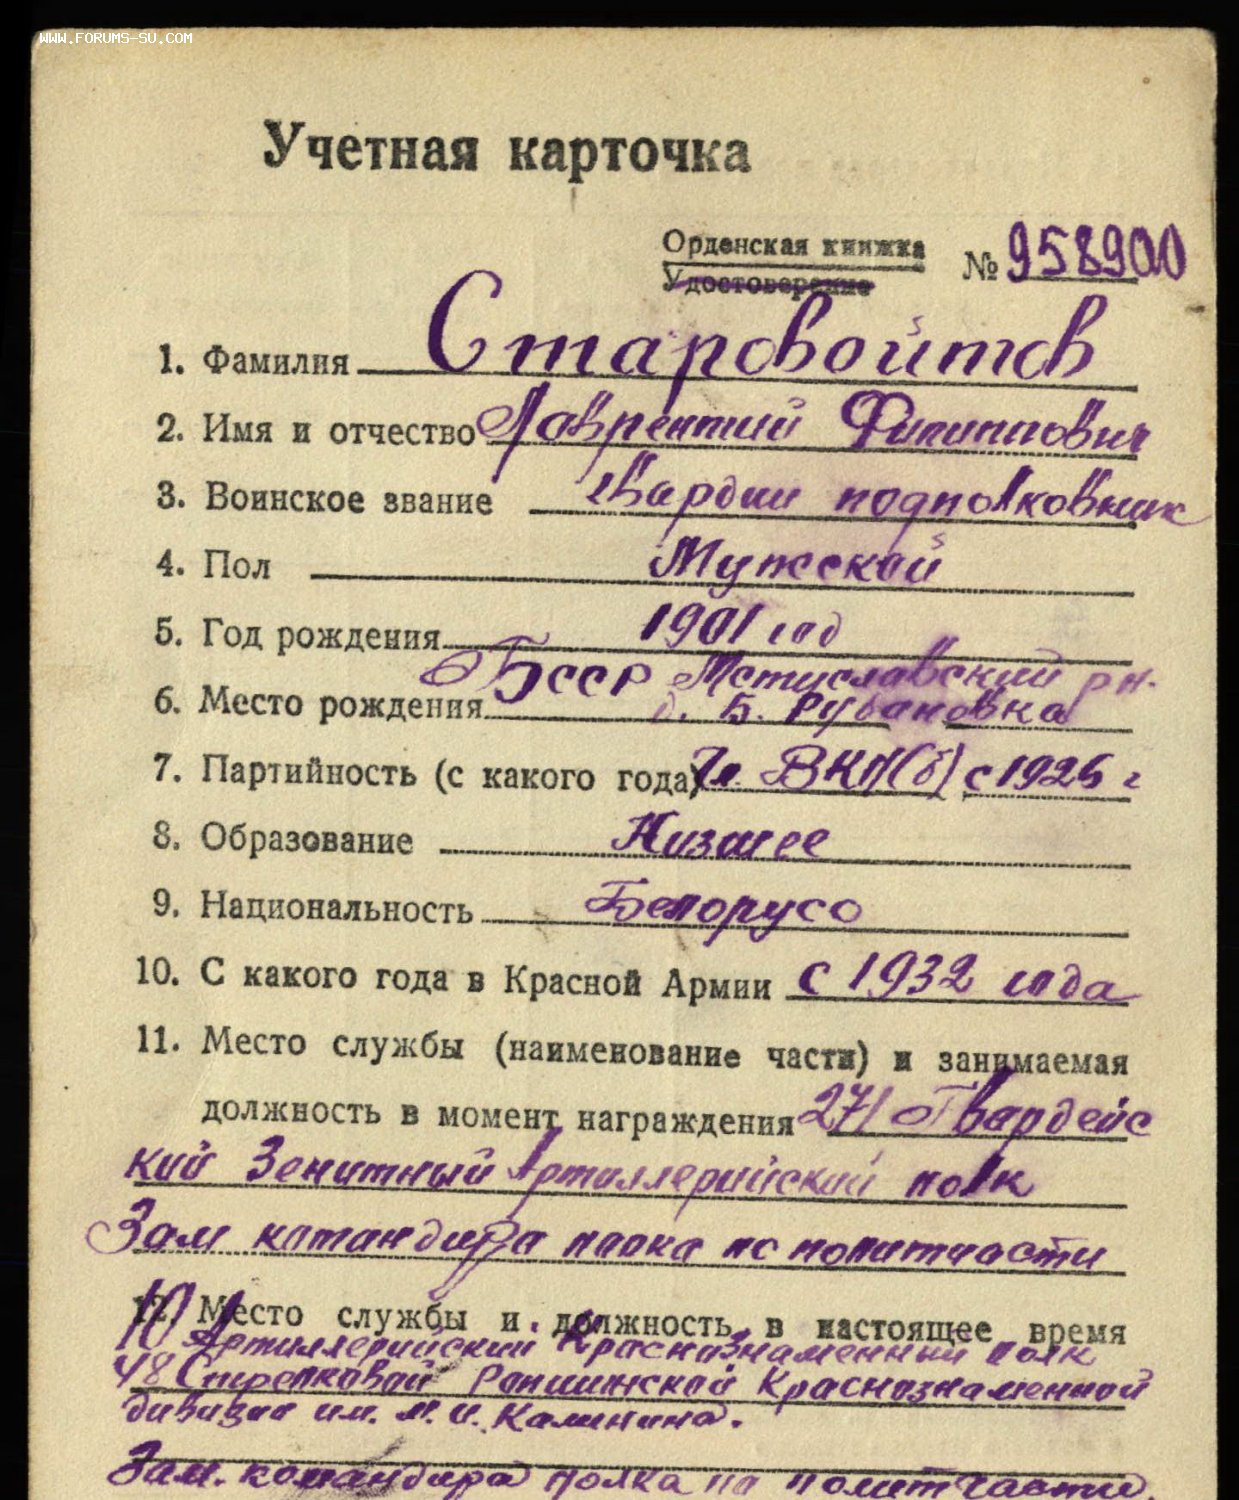 WWW.FORUMS-SU.COM
Учетная карточка
Орденская книжка
Удостоверение
№ 958900
1. Фамилия Старовойтов
2. Имя и отчество Лаврентий Филиппович
3. Воинское звание гвардии подполковник
4. Пол Мужской
5. Год рождения 1901 год
БССР Мстиславский рн.
6. Место рождения д. Б.
7. Партийность (с какого года) Чл ВКП(б) с 1925 г
8. Образование Низшее
9. Национальность Белорусс
10. С какого года в Красной Армии с 1932 года
11. Место службы (наименование части) и занимаемая
должность в момент награждения 271 Гвардейс
кий Зенитный Артиллерийский полк
Зам командира полка по политчасти
12. Место службы и должность в настоящее время
10 Артиллерийский Краснознаменный полк
48 Стрелковой Ропшинской Краснознаменной
дивизии им. М. И. Калинина.
Зам. командира полка по политчасти.